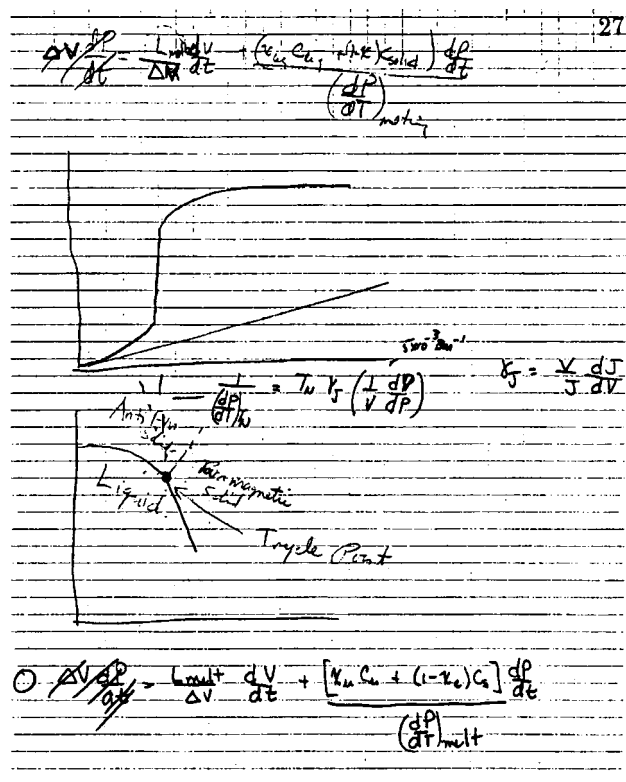 27
ΔV dP/dt = L_melt/ΔV dV/dt + (x_u C_u, (1-x) C_solid) dP/dt
(dP/dT) melting
5x10⁻³ cm⁻¹
1/(dP/dT)_N = T_N γ_J (1/V dV/dP)
γ_J = V/J dJ/dV
Liquid
Paramagnetic
Solid
Tryple Point
ΔV dP/dt = L_melt/ΔV dV/dt + [x_u C_u + (1-x_e) C_s] dP/dt
(dP/dT) melt